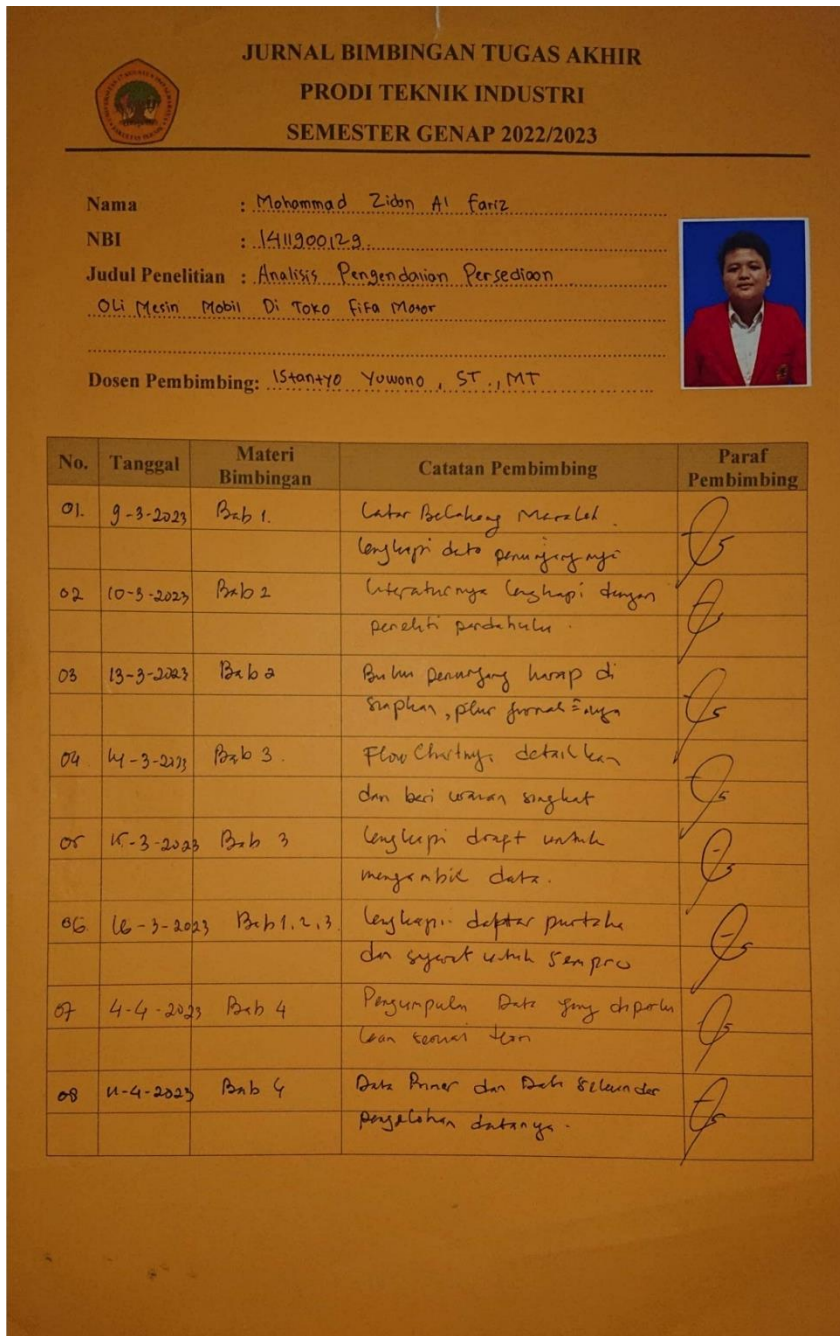 JURNAL BIMBINGAN TUGAS AKHIR
PRODI TEKNIK INDUSTRI
SEMESTER GENAP 2022/2023
Nama : Mohammad Zidan Al Fariz
NBI : 1411900129
Judul Penelitian : Analisis Pengendalian Persediaan
Oli Mesin Mobil Di Toko Fifa Motor
Dosen Pembimbing: Istantyo Yuwono, ST., MT
No. Tanggal Materi Bimbingan Catatan Pembimbing Paraf Pembimbing
01. 9-3-2023 Bab 1. Latar Belakang Masalah.
lengkapi data penunjangnya
02 10-3-2023 Bab 2 literaturnya lengkapi dengan
peneliti terdahulu.
03 13-3-2023 Bab 2 Buku penunjang harap di
siapkan, plus jurnal =nya
04. 14-3-2023 Bab 3. Flow Chartnya detailkan
dan beri uraian singkat
05 15-3-2023 Bab 3 lengkapi draft untuk
mengambil data.
06. 16-3-2023 Bab 1, 2, 3. lengkapi daftar pustaka
dan syarat untuk Sempro
07 4-4-2023 Bab 4 Pengumpulan Data yang diperlu
kan sesuai
08 11-4-2023 Bab 4 Data Primer dan Data Sekunder
pengolahan datanya.